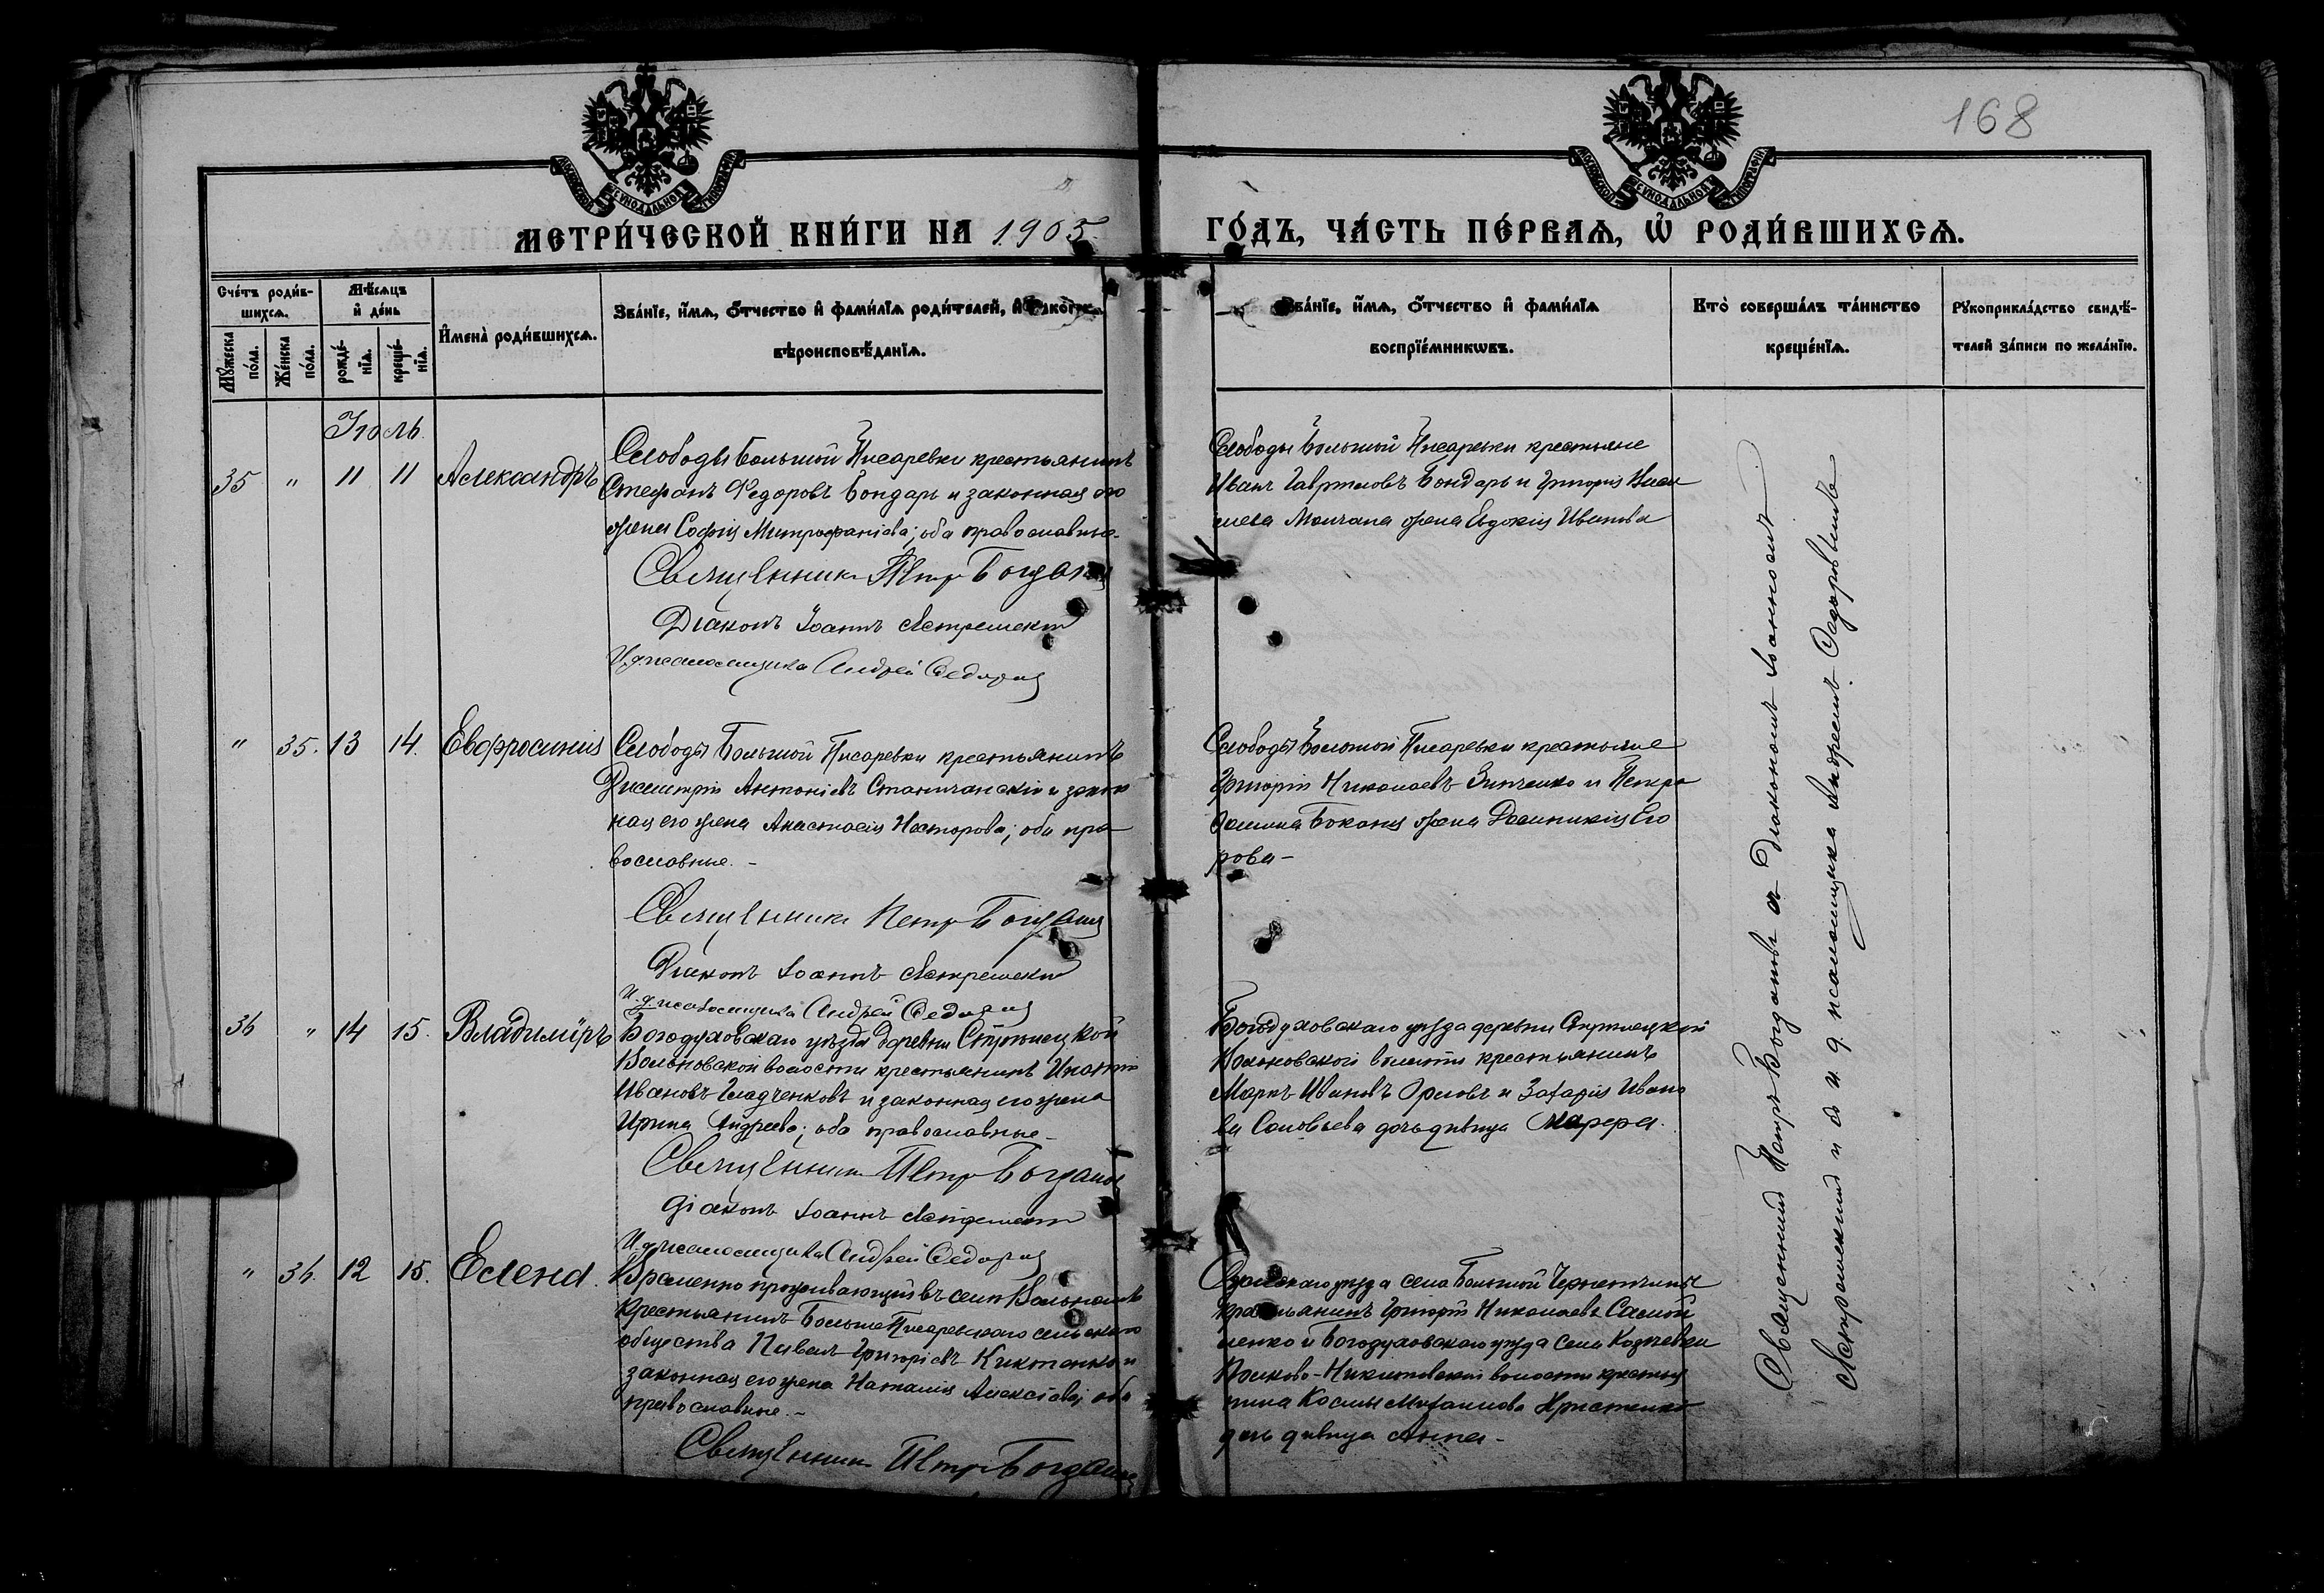 168
МЕТРИ́ЧЕСКОЙ КНИ́ГИ НА 1905
ГО́ДЪ, ЧА́СТЬ ПЕ́РВАѦ, Ѡ҆ РОДИ́ВШИХСѦ.
Сче́тъ роди́в-
шихсѧ.
Мꙋ́жеска
по́ла.
Же́нска
по́ла.
Мѣ́сѧцъ
и҆ де́нь
рожде́-
нїѧ.
креще́-
нїѧ.
И҆мена̀ роди́вшихсѧ.
Зва́нїе, и҆́мѧ, ѻ҆́тчество и҆ фами́лїѧ роди́телей, и҆
вѣроисповѣ́данїѧ.
Зва́нїе, и҆́мѧ, ѻ҆́тчество и҆ фами́лїѧ
воспрїе́мникѡвъ.
Кто̀ соверша́лъ та́инство
креще́нїѧ.
Рꙋкоприкла́дство свидѣ́-
телей за́писи по жела́нїю.
Іюль.
35 " 11 11 Александръ
Слободы Большой Писаревки крестьянинъ
Стефанъ Федоровъ Бондарь и законная его
жена Софія Митрофаніева; оба православные.
Священникъ Петръ Богданов
Діаконъ Іоаннъ
И. д. псаломщика Андрей Федоров
Слободы Большой Писаревки крестьяне
Иванъ Гавриловъ Бондарь и Григорія
жена Евдокія Иванова
" 35. 13 14. Евфросинія
Слободы Большой Писаревки крестьянинъ
Димитрій Антоніевъ Станичанскій и закон
ная его жена Анастасія Несторова; оба пра
вославные. -
Священникъ Петръ Богданов
Діаконъ Іоаннъ
И. д. псаломщика Андрей Федоров
Слободы Большой Писаревки крестьяне
Григорій Николаевъ Зинченко и Петра
жена Домникія Его
рова -
36 " 14 15. Владиміръ
Богодуховскаго уѣзда деревни Стрѣлецкой
Вольновской волости крестьянинъ
Ивановъ Гладченковъ и законная его жена
Ирина Андреева; оба православные -
Священникъ Петръ Богданов
Діаконъ Іоаннъ
И. д. псаломщика Андрей Федоров
Богодуховскаго уѣзда деревни Стрѣлецкой
Вольновской волости крестьянинъ
Маркъ Ивановъ Орловъ и Захарія Ивано
ва Соловьева дочь дѣвица Марфа.
" 36. 12 15. Елена.
Временно проживающій въ селѣ Вольномъ
крестьянинъ Больше Писаревскаго сельскаго
общества Павелъ Григоріевъ Киктенко и
законная его жена Наталія Алексіева; оба
православные. -
Священникъ Петръ Богданов
Сумскаго уѣзда села Большой Чернетчины
крестьянинъ Григорій Николаевъ Самой
ленко и Богодуховскаго уѣзда села Козѣевки
Никитовской волости крестья
нина Космы Михаилова
дочь дѣвица Анна -
Священникъ Петръ Богдановъ съ Діакономъ Іоанномъ
и съ и. д. псаломщика Андреемъ